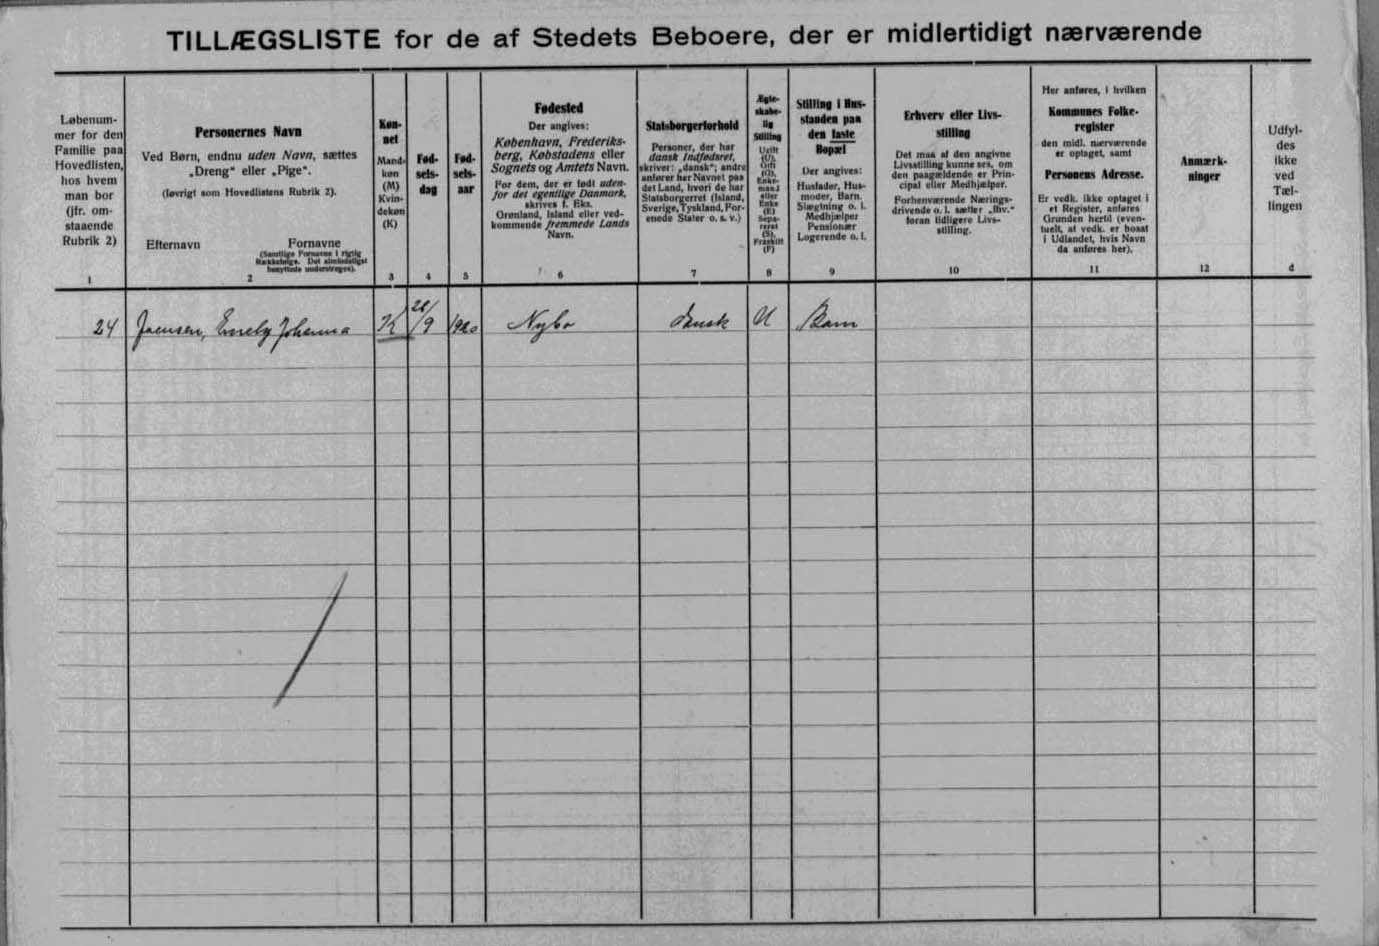 TILLÆGSLISTE for de af Stedets Beboere, der er midlertidigt nærværende
Løbenum-
mer for den
Familie paa
Hovedlisten,
hos hvem
man bor
(jfr. om-
staaende
Rubrik 2)
1
Personernes Navn
Ved Børn, endnu uden Navn, sættes
„Dreng“ eller „Pige“.
(Iøvrigt som Hovedlistens Rubrik 2).
Efternavn Fornavne
(Samtlige Fornavne i rigtig
Rækkefølge. Det almindeligst
benyttede understreges).
2
Køn-
net
Mand-
køn
(M)
Kvin-
dekøn
(K)
3
Fød-
sels-
dag
4
Fød-
sels-
aar
5
Fødested
Der angives:
København, Frederiks-
berg, Købstadens eller
Sognets og Amtets Navn.
For dem, der er født uden-
for det egentlige Danmark,
skrives f. Eks.
Grønland, Island eller ved-
kommende fremmede Lands
Navn.
6
Statsborgerforhold
Personer, der har
dansk Indfødsret,
skriver: „dansk“; andre
anfører her Navnet paa
det Land, hvori de har
Statsborgerret (Island,
Sverige, Tyskland, For-
enede Stater o. s. v.)
7
Ægte-
skabe-
lig
Stilling
Ugift
(U),
Gift
(G),
Enke-
mand
eller
Enke
(E)
Sepa-
reret
(S),
Fraskilt
(F)
8
Stilling i Hus-
standen paa
den faste
Bopæl
Der angives:
Husfader, Hus-
moder, Barn,
Slægtning o. l.
Medhjælper
Pensionær
Logerende o. l.
9
Erhverv eller Livs-
stilling
Det maa af den angivne
Livsstilling kunne ses, om
den paagældende er Prin-
cipal eller Medhjælper.
Forhenværende Nærings-
drivende o. l. sætter „fhv.“
foran tidligere Livs-
stilling.
10
Her anføres, i hvilken
Kommunes Folke-
register
den midl. nærværende
er optaget, samt
Personens Adresse.
Er vedk. ikke optaget i
et Register, anføres
Grunden hertil (even-
tuelt, at vedk. er bosat
i Udlandet, hvis Navn
da anføres her).
11
Anmærk-
ninger
12
Udfyl-
des
ikke
ved
Tæl-
lingen
d
24 Joensen, Emely Johanna K 28/9 1920 Nybo Dansk U Barn